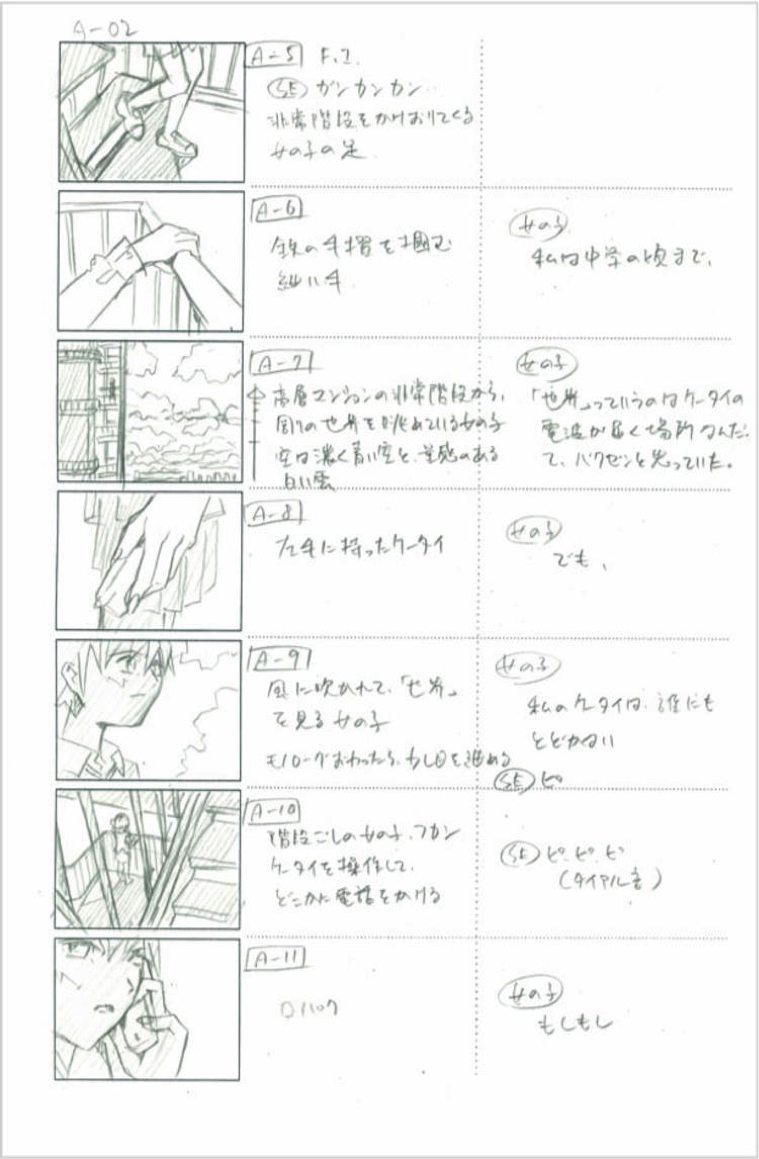 A-02
A-5 F.I.
SE ガンカンカン…
非常階段をかけおりてくる
女の子の足
A-6
鉄の手摺を掴む
細い手
女の子
私は中学の頃まで、
A-7
高層マンションの非常階段から、
周りの世界を眺めている女の子
空は濃く青い空と、量感のある
白い雲
女の子
「世界」っていうのはケータイの
電波が届く場所なんだっ
て、バクゼンと思っていた。
A-8
左手に持ったケータイ
女の子
でも、
A-9
風に吹かれて、「世界」
を見る女の子
モノローグおわったら、
女の子
私のケータイは、誰にも
とどかない
SE ピ
A-10
階段ごしの女の子、フカン
ケータイを操作して、
どこかに電話をかける
SE ピ、ピ、ピ
(ダイアル音)
A-11
女の子
もしもし